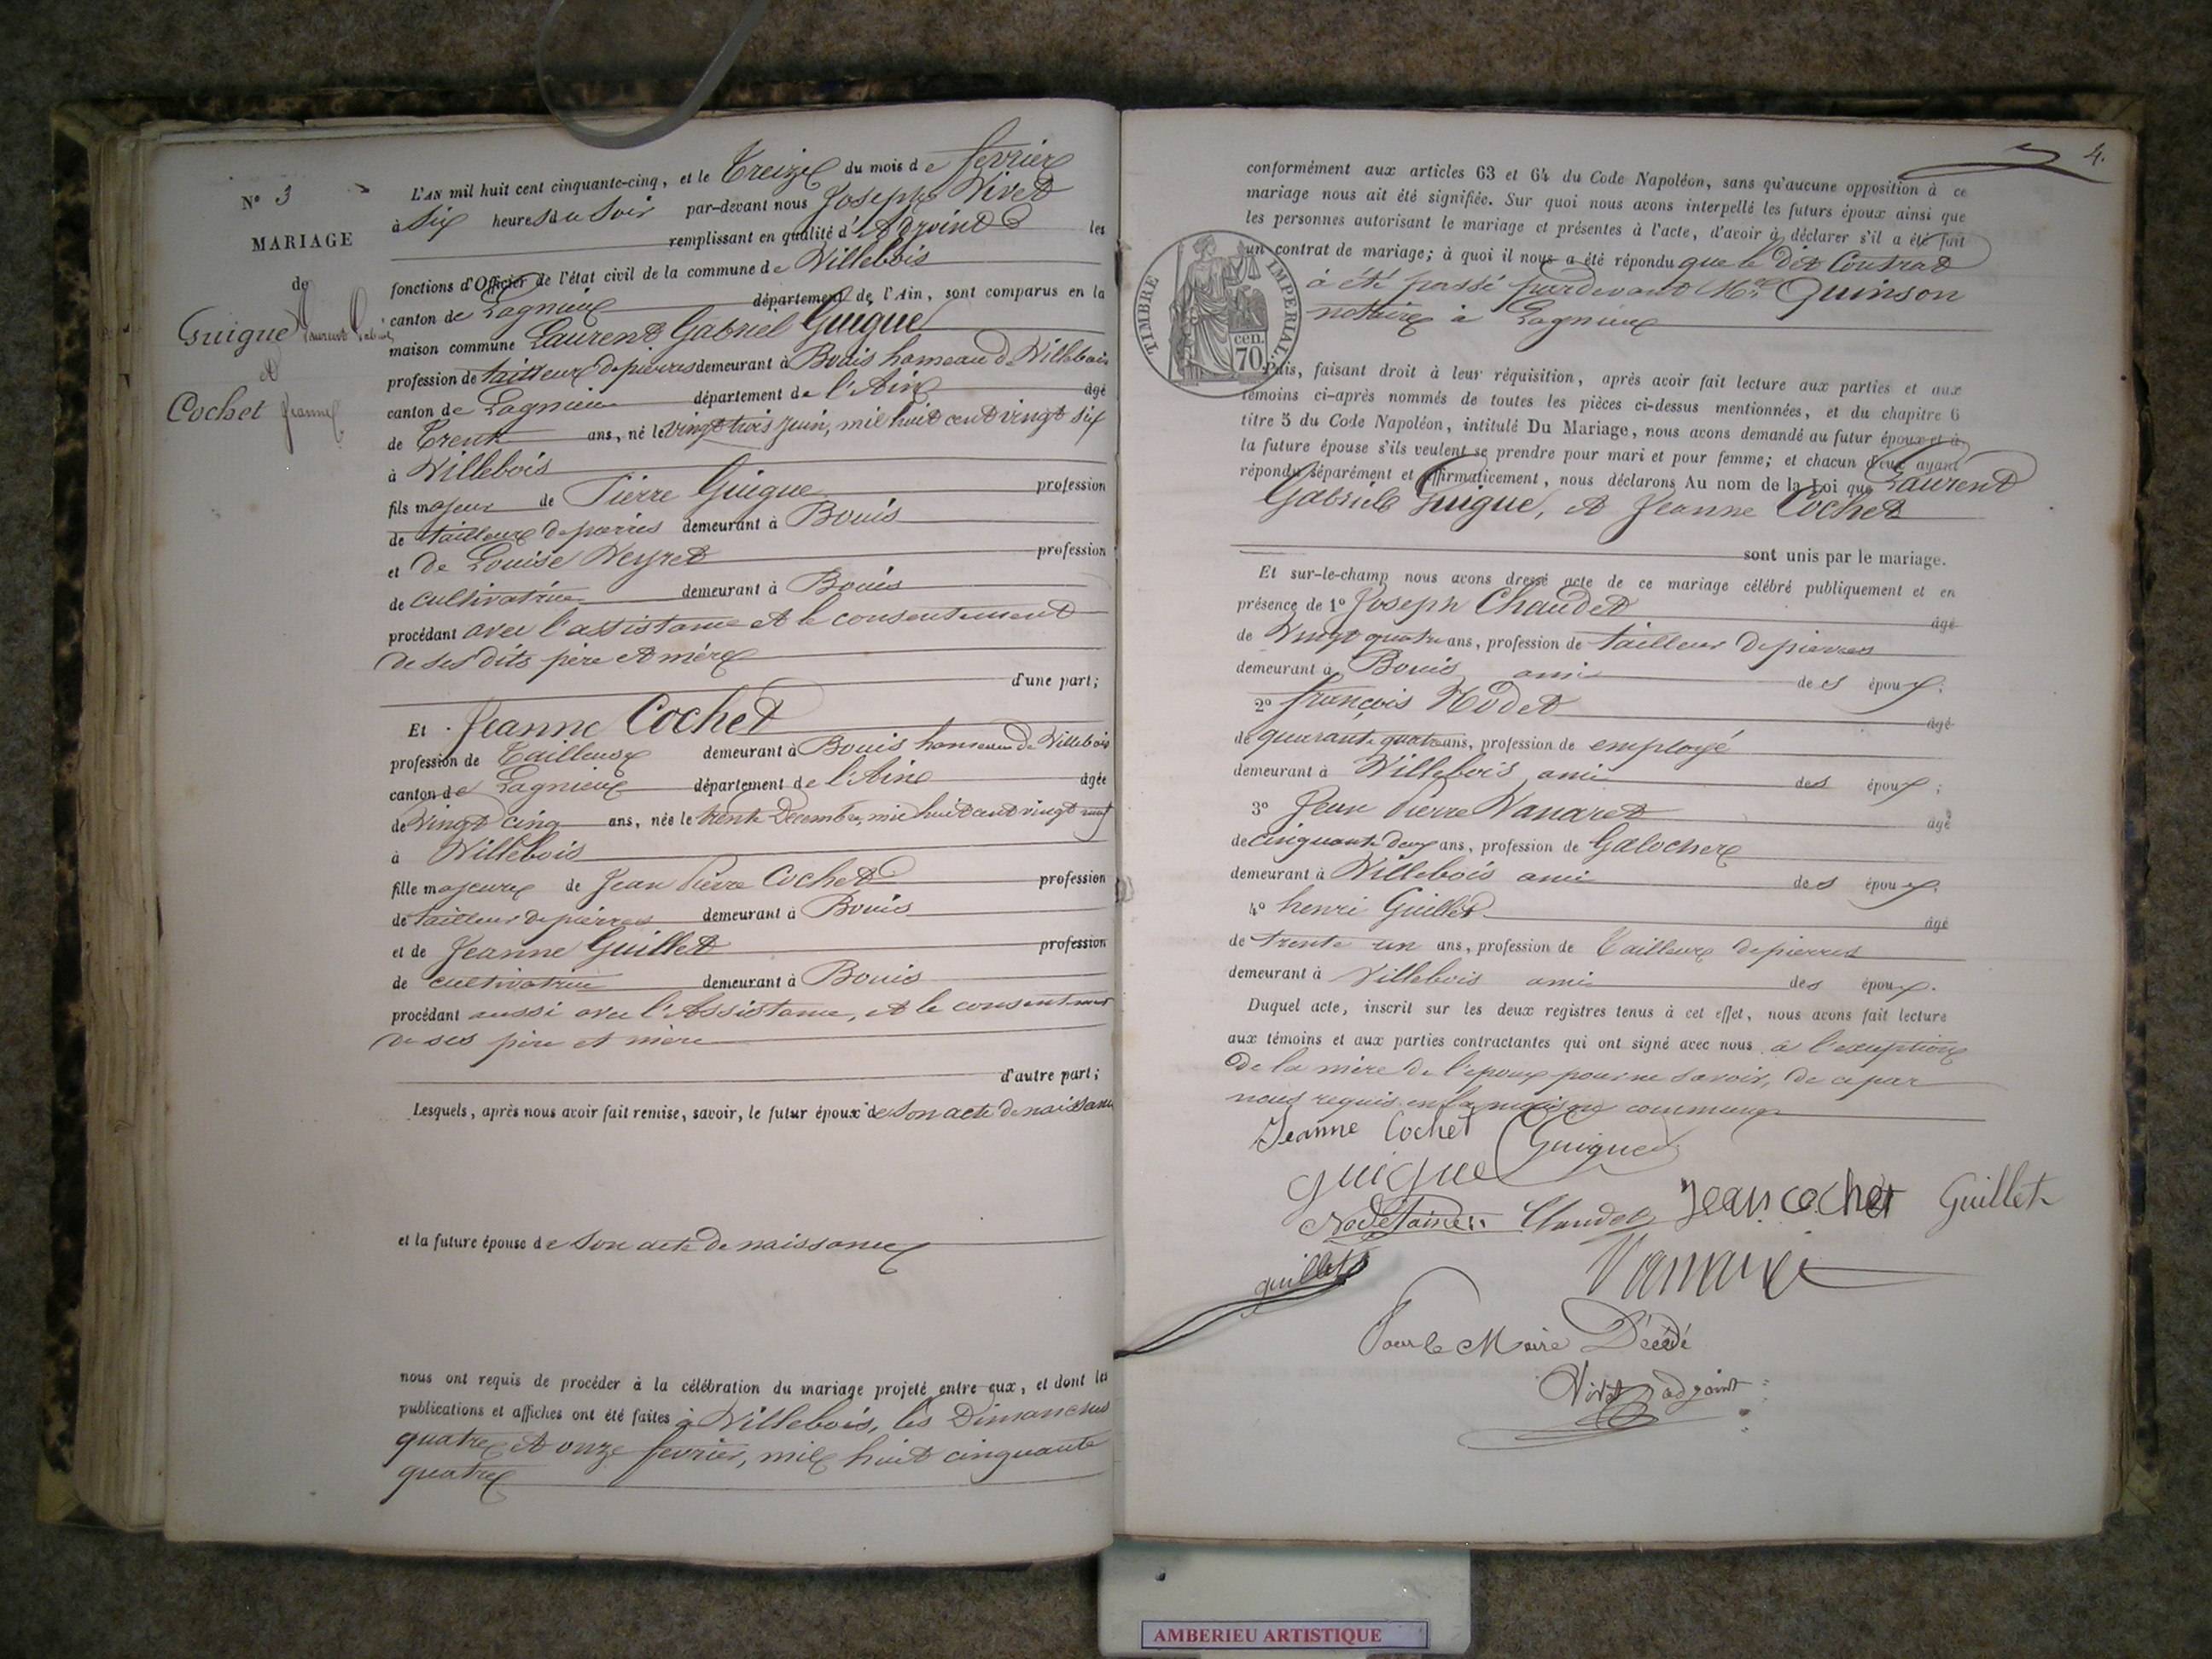 N° 3
MARIAGE
de
Guigue Laurent Gabriel
et
Cochet Jeanne
L'AN mil huit cent cinquante-cinq, et le Treize du mois de fevrier
à Six heures du Soir par-devant nous Joseph Vivet
remplissant en qualité d'Adjoint les
fonctions d'Officier de l'état civil de la commune de Villebois
canton de Lagnieux département de l'Ain, sont comparus en la
maison commune Laurent Gabriel Guigue
profession de tailleur de pierres demeurant à Bouis hameau de Villebois
canton de Lagnieu département de l'Ain âgé
de Trente ans, né le vingt trois juin, mil huit cent vingt six
à Villebois
fils majeur de Pierre Guigue profession
de tailleur de pierres demeurant à Bouis
et de Louise Veyret profession
de cultivatrice demeurant à Bouis
procédant avec l'assistance et le consentement
de ses dits père et mère
d'une part;
Et Jeanne Cochet
profession de Tailleuse demeurant à Bouis hameau de Villebois
canton de Lagnieux département de l'Ain âgée
de Vingt cinq ans, née le trente Decembre, mil huit cent vingt neuf
à Villebois
fille majeure de Jean Pierre Cochet profession
de tailleur de pierres demeurant à Bouis
et de Jeanne Guillet profession
de cultivatrice demeurant à Bouis
procédant aussi avec l'Assistance, et le consentement
de ses père et mère
d'autre part;
Lesquels, après nous avoir fait remise, savoir, le futur époux de son acte de naissance
et la future épouse de son acte de naissance
nous ont requis de procéder à la célébration du mariage projeté entre eux, et dont les
publications et affiches ont été faites à Villebois, les Dimanches
quatre et onze fevrier, mil huit cinquante
quatre
4.
conformément aux articles 63 et 64 du Code Napoléon, sans qu'aucune opposition à ce
mariage nous ait été signifiée. Sur quoi nous avons interpellé les futurs époux ainsi que
les personnes autorisant le mariage et présentes à l'acte, d'avoir à déclarer s'il a été fait
un contrat de mariage; à quoi il nous a été répondu que le dit Contrat
à été passé pardevant Me Quinson
notaire à Lagnieux
TIMBRE IMPERIAL
70 cen.
Puis, faisant droit à leur réquisition, après avoir fait lecture aux parties et aux
témoins ci-après nommés de toutes les pièces ci-dessus mentionnées, et du chapitre 6
titre 5 du Code Napoléon, intitulé Du Mariage, nous avons demandé au futur époux et à
la future épouse s'ils veulent se prendre pour mari et pour femme; et chacun d'eux ayant
répondu séparément et affirmativement, nous déclarons Au nom de la Loi que Laurent
Gabriel Guigue, et Jeanne Cochet
sont unis par le mariage.
Et sur-le-champ nous avons dressé acte de ce mariage célébré publiquement et en
présence de 1° Joseph Chaudet âgé
de Vingt quatre ans, profession de tailleur de pierres
demeurant à Bouis ami des époux;
2° françois Nodet âgé
de quarante quatre ans, profession de employé
demeurant à Villebois ami des époux;
3° Jean Pierre Vanaret âgé
de cinquante deux ans, profession de Galocher
demeurant à Villebois ami des époux;
4° henri Guillet âgé
de trente un ans, profession de Tailleur de pierres
demeurant à Villebois ami des époux.
Duquel acte, inscrit sur les deux registres tenus à cet effet, nous avons fait lecture
aux témoins et aux parties contractantes qui ont signé avec nous à l'exception
de la mère de l'epoux pour ne savoir, de ce par
nous requis en la maison commune
Jeanne Cochet Guigue
guigue
Chaudet Jean cochet Guillet
guillet
Vanaret
Pour le Maire Décédé
Vivet adjoint
AMBERIEU ARTISTIQUE